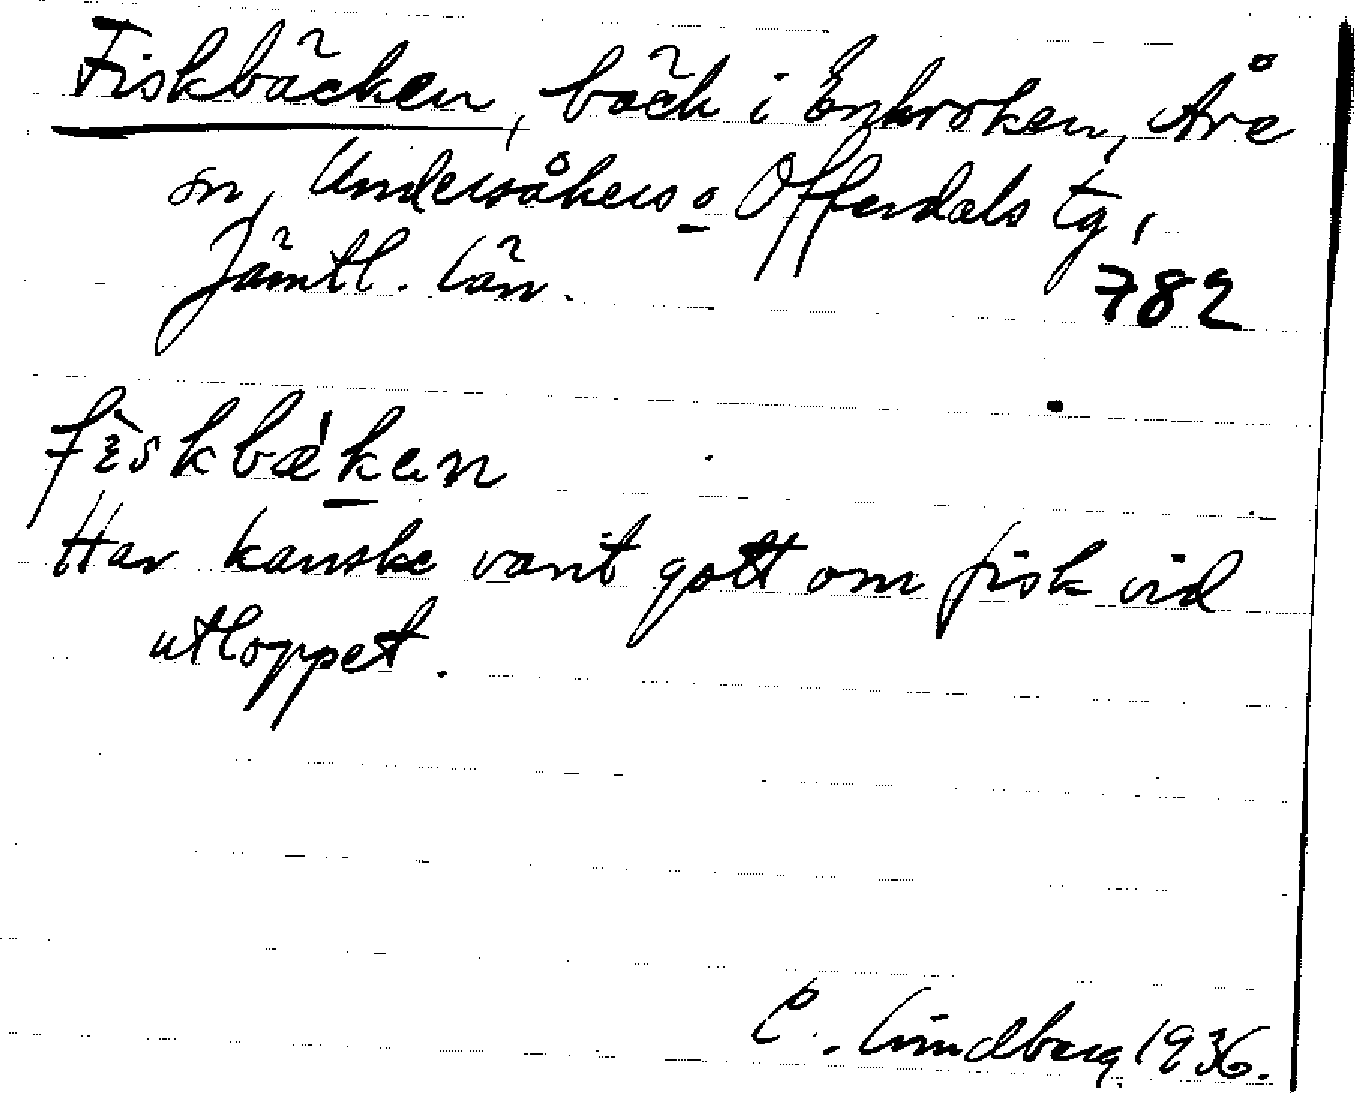 Fiskbäcken, bäck i Enkroken, Åre
sn, Undersåkers o Offerdals tg,
Jämtl. län. 782
fìskbæ̀kan
Har kanske varit gott om fisk vid
utloppet.
C. Lindberg 1936.